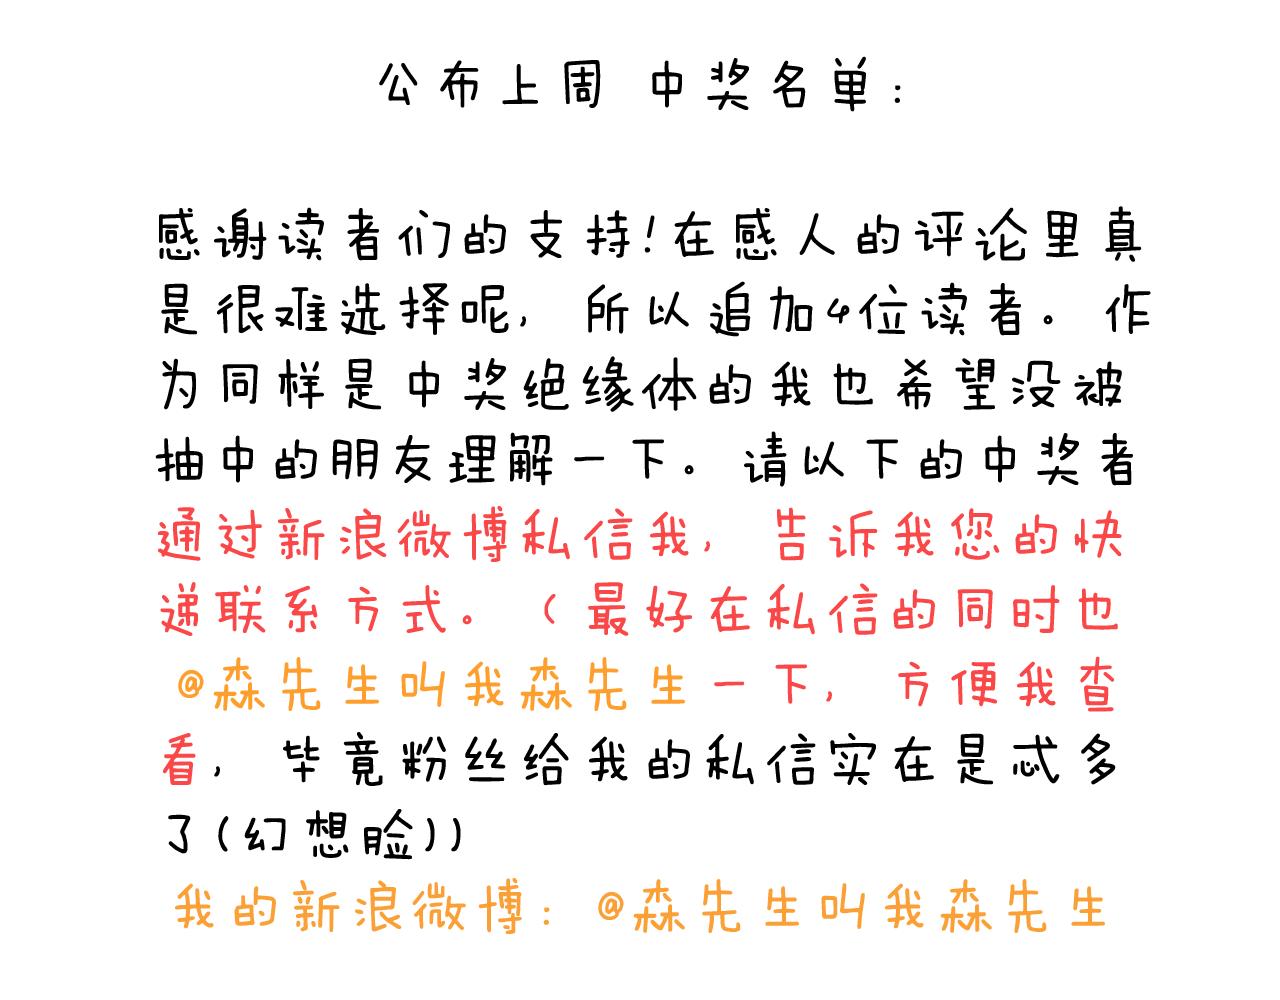 公布上周 中奖名单：
感谢读者们的支持！在感人的评论里真
是很难选择呢，所以追加4位读者。作
为同样是中奖绝缘体的我也希望没被
抽中的朋友理解一下。请以下的中奖者
通过新浪微博私信我，告诉我您的快
递联系方式。（最好在私信的同时也
@森先生叫我森先生一下，方便我查
看，毕竟粉丝给我的私信实在是忒多
了(幻想脸))
我的新浪微博：@森先生叫我森先生